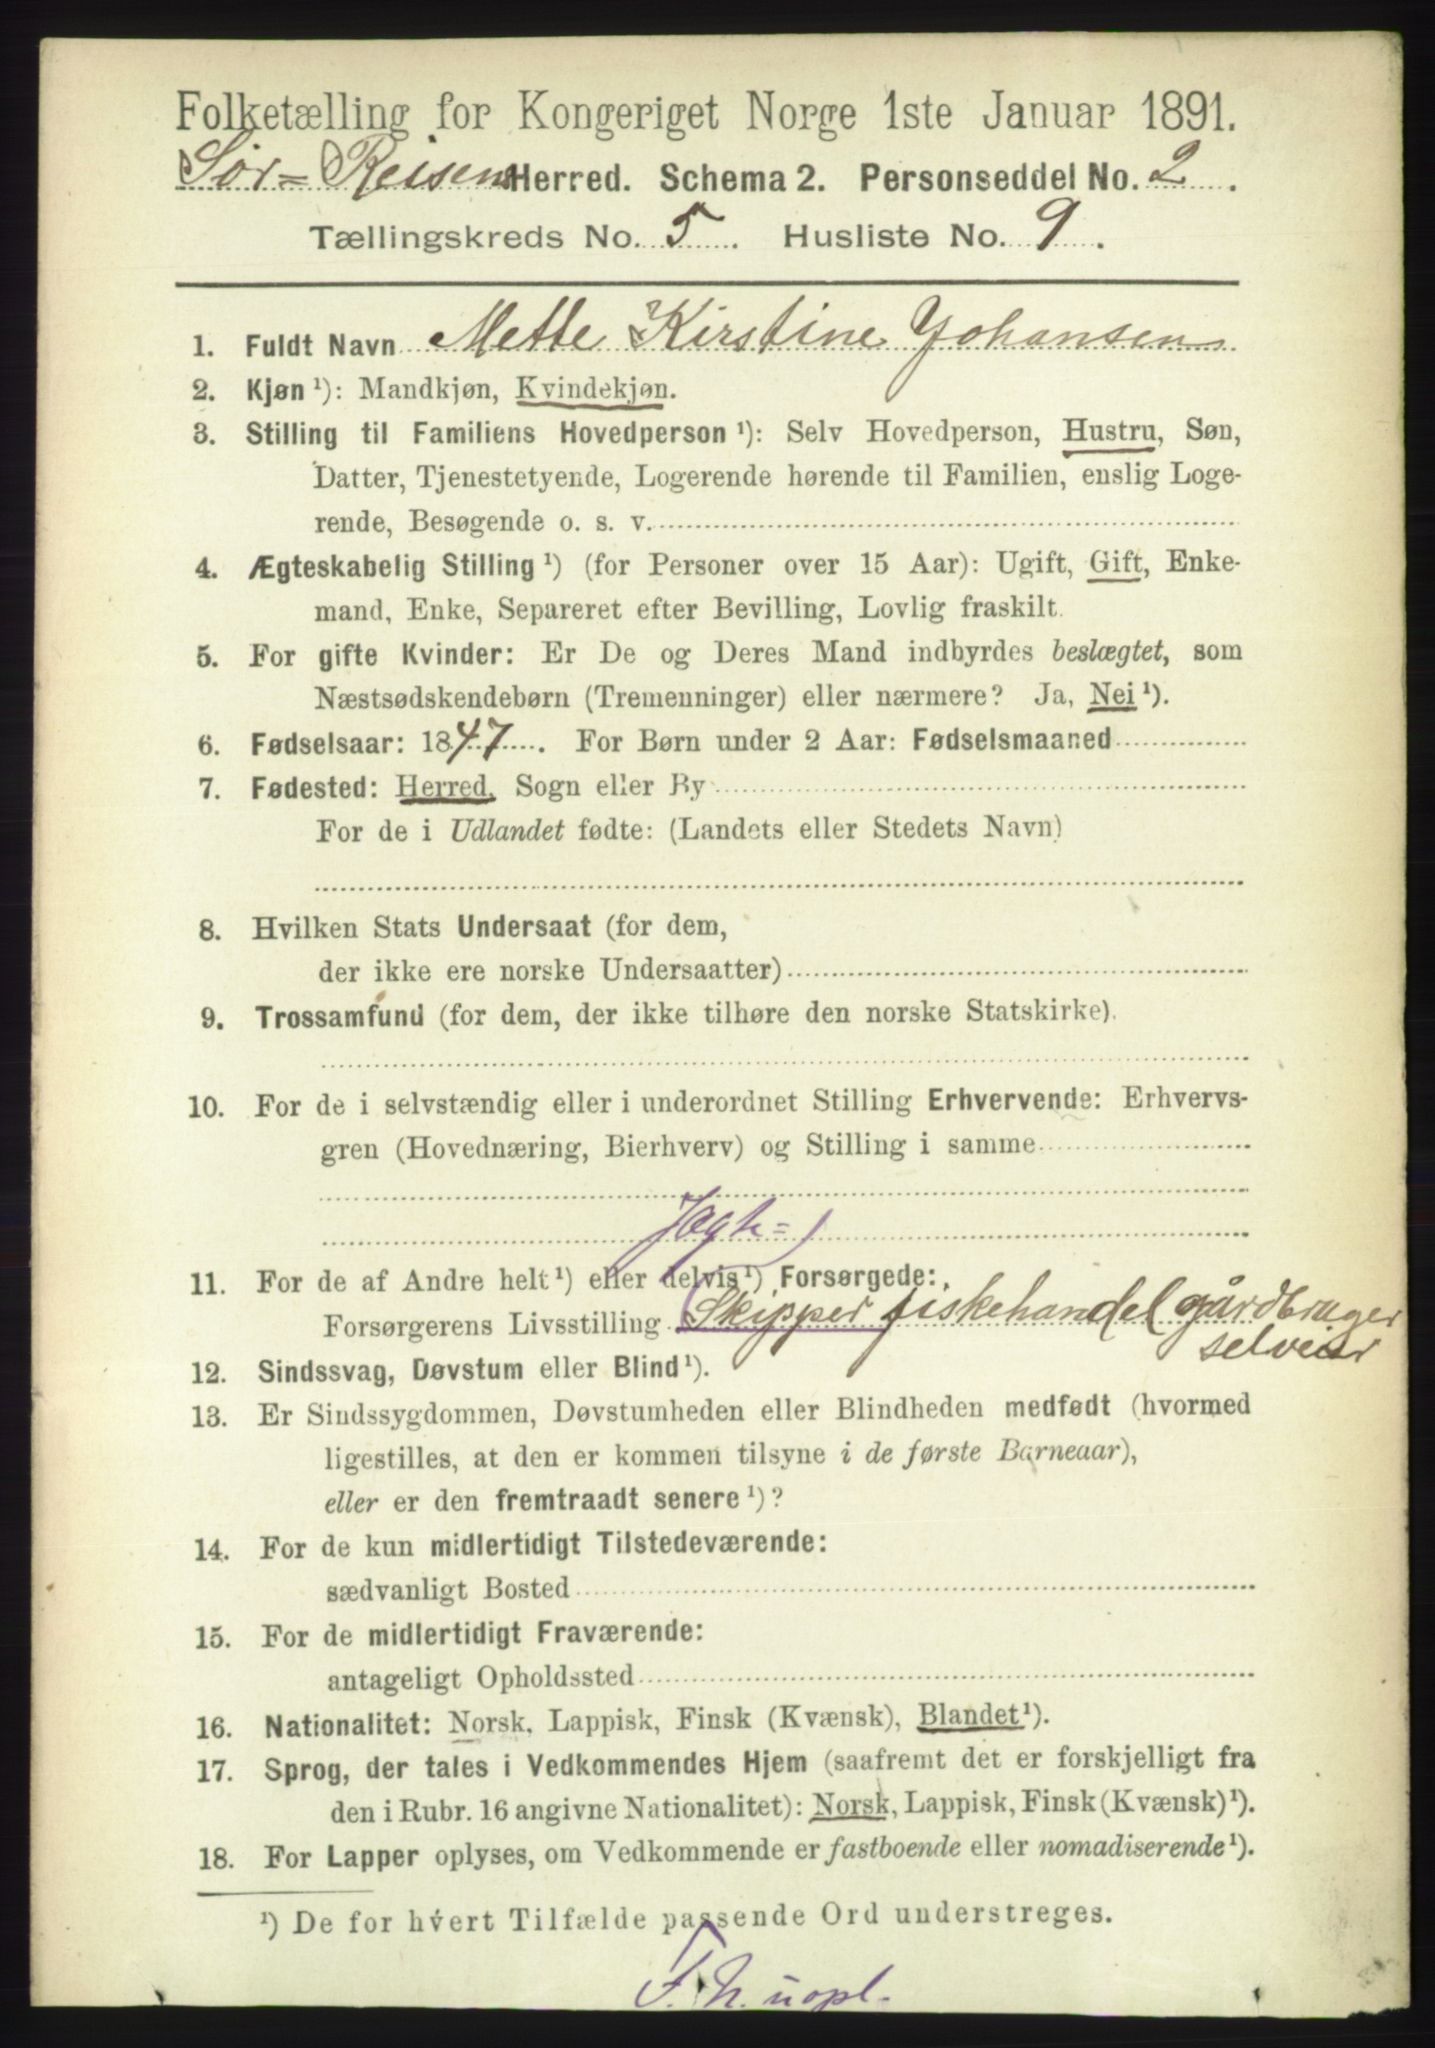 Folketælling for Kongeriget Norge 1ste Januar 1891.
Sør-Reisens Herred. Schema 2. Personseddel No. 2.
Tællingskreds No. 5. Husliste No. 9.
1. Fuldt Navn Mette Kirstine Johansen
2. Kjøn ¹): Mandkjøn, Kvindekjøn.
3. Stilling til Familiens Hovedperson ¹): Selv Hovedperson, Hustru, Søn,
Datter, Tjenestetyende, Logerende hørende til Familien, enslig Loge-
rende, Besøgende o. s. v.
4. Ægteskabelig Stilling ¹) (for Personer over 15 Aar): Ugift, Gift, Enke-
mand, Enke, Separeret efter Bevilling, Lovlig fraskilt.
5. For gifte Kvinder: Er De og Deres Mand indbyrdes beslægtet, som
Næstsødskendebørn (Tremenninger) eller nærmere? Ja, Nei ¹).
6. Fødselsaar: 1847. For Børn under 2 Aar: Fødselsmaaned
7. Fødested: Herred, Sogn eller By
For de i Udlandet fødte: (Landets eller Stedets Navn)
8. Hvilken Stats Undersaat (for dem,
der ikke ere norske Undersaatter)
9. Trossamfund (for dem, der ikke tilhøre den norske Statskirke).
10. For de i selvstændig eller i underordnet Stilling Erhvervende: Erhvervs-
gren (Hovednæring, Bierhverv) og Stilling i samme
Jagt=
11. For de af Andre helt ¹) eller delvis ¹) Forsørgede:
Forsørgerens Livsstilling Skipper fiskehandel gårdbruger
selveier
12. Sindssvag, Døvstum eller Blind ¹).
13. Er Sindssygdommen, Døvstumheden eller Blindheden medfødt (hvormed
ligestilles, at den er kommen tilsyne i de første Barneaar),
eller er den fremtraadt senere ¹)?
14. For de kun midlertidigt Tilstedeværende:
sædvanligt Bosted
15. For de midlertidigt Fraværende:
antageligt Opholdssted
16. Nationalitet: Norsk, Lappisk, Finsk (Kvænsk), Blandet ¹).
17. Sprog, der tales i Vedkommendes Hjem (saafremt det er forskjelligt fra
den i Rubr. 16 angivne Nationalitet): Norsk, Lappisk, Finsk (Kvænsk) ¹).
18. For Lapper oplyses, om Vedkommende er fastboende eller nomadiserende ¹).
¹) De for hvert Tilfælde passende Ord understreges.
F. N. uopl.